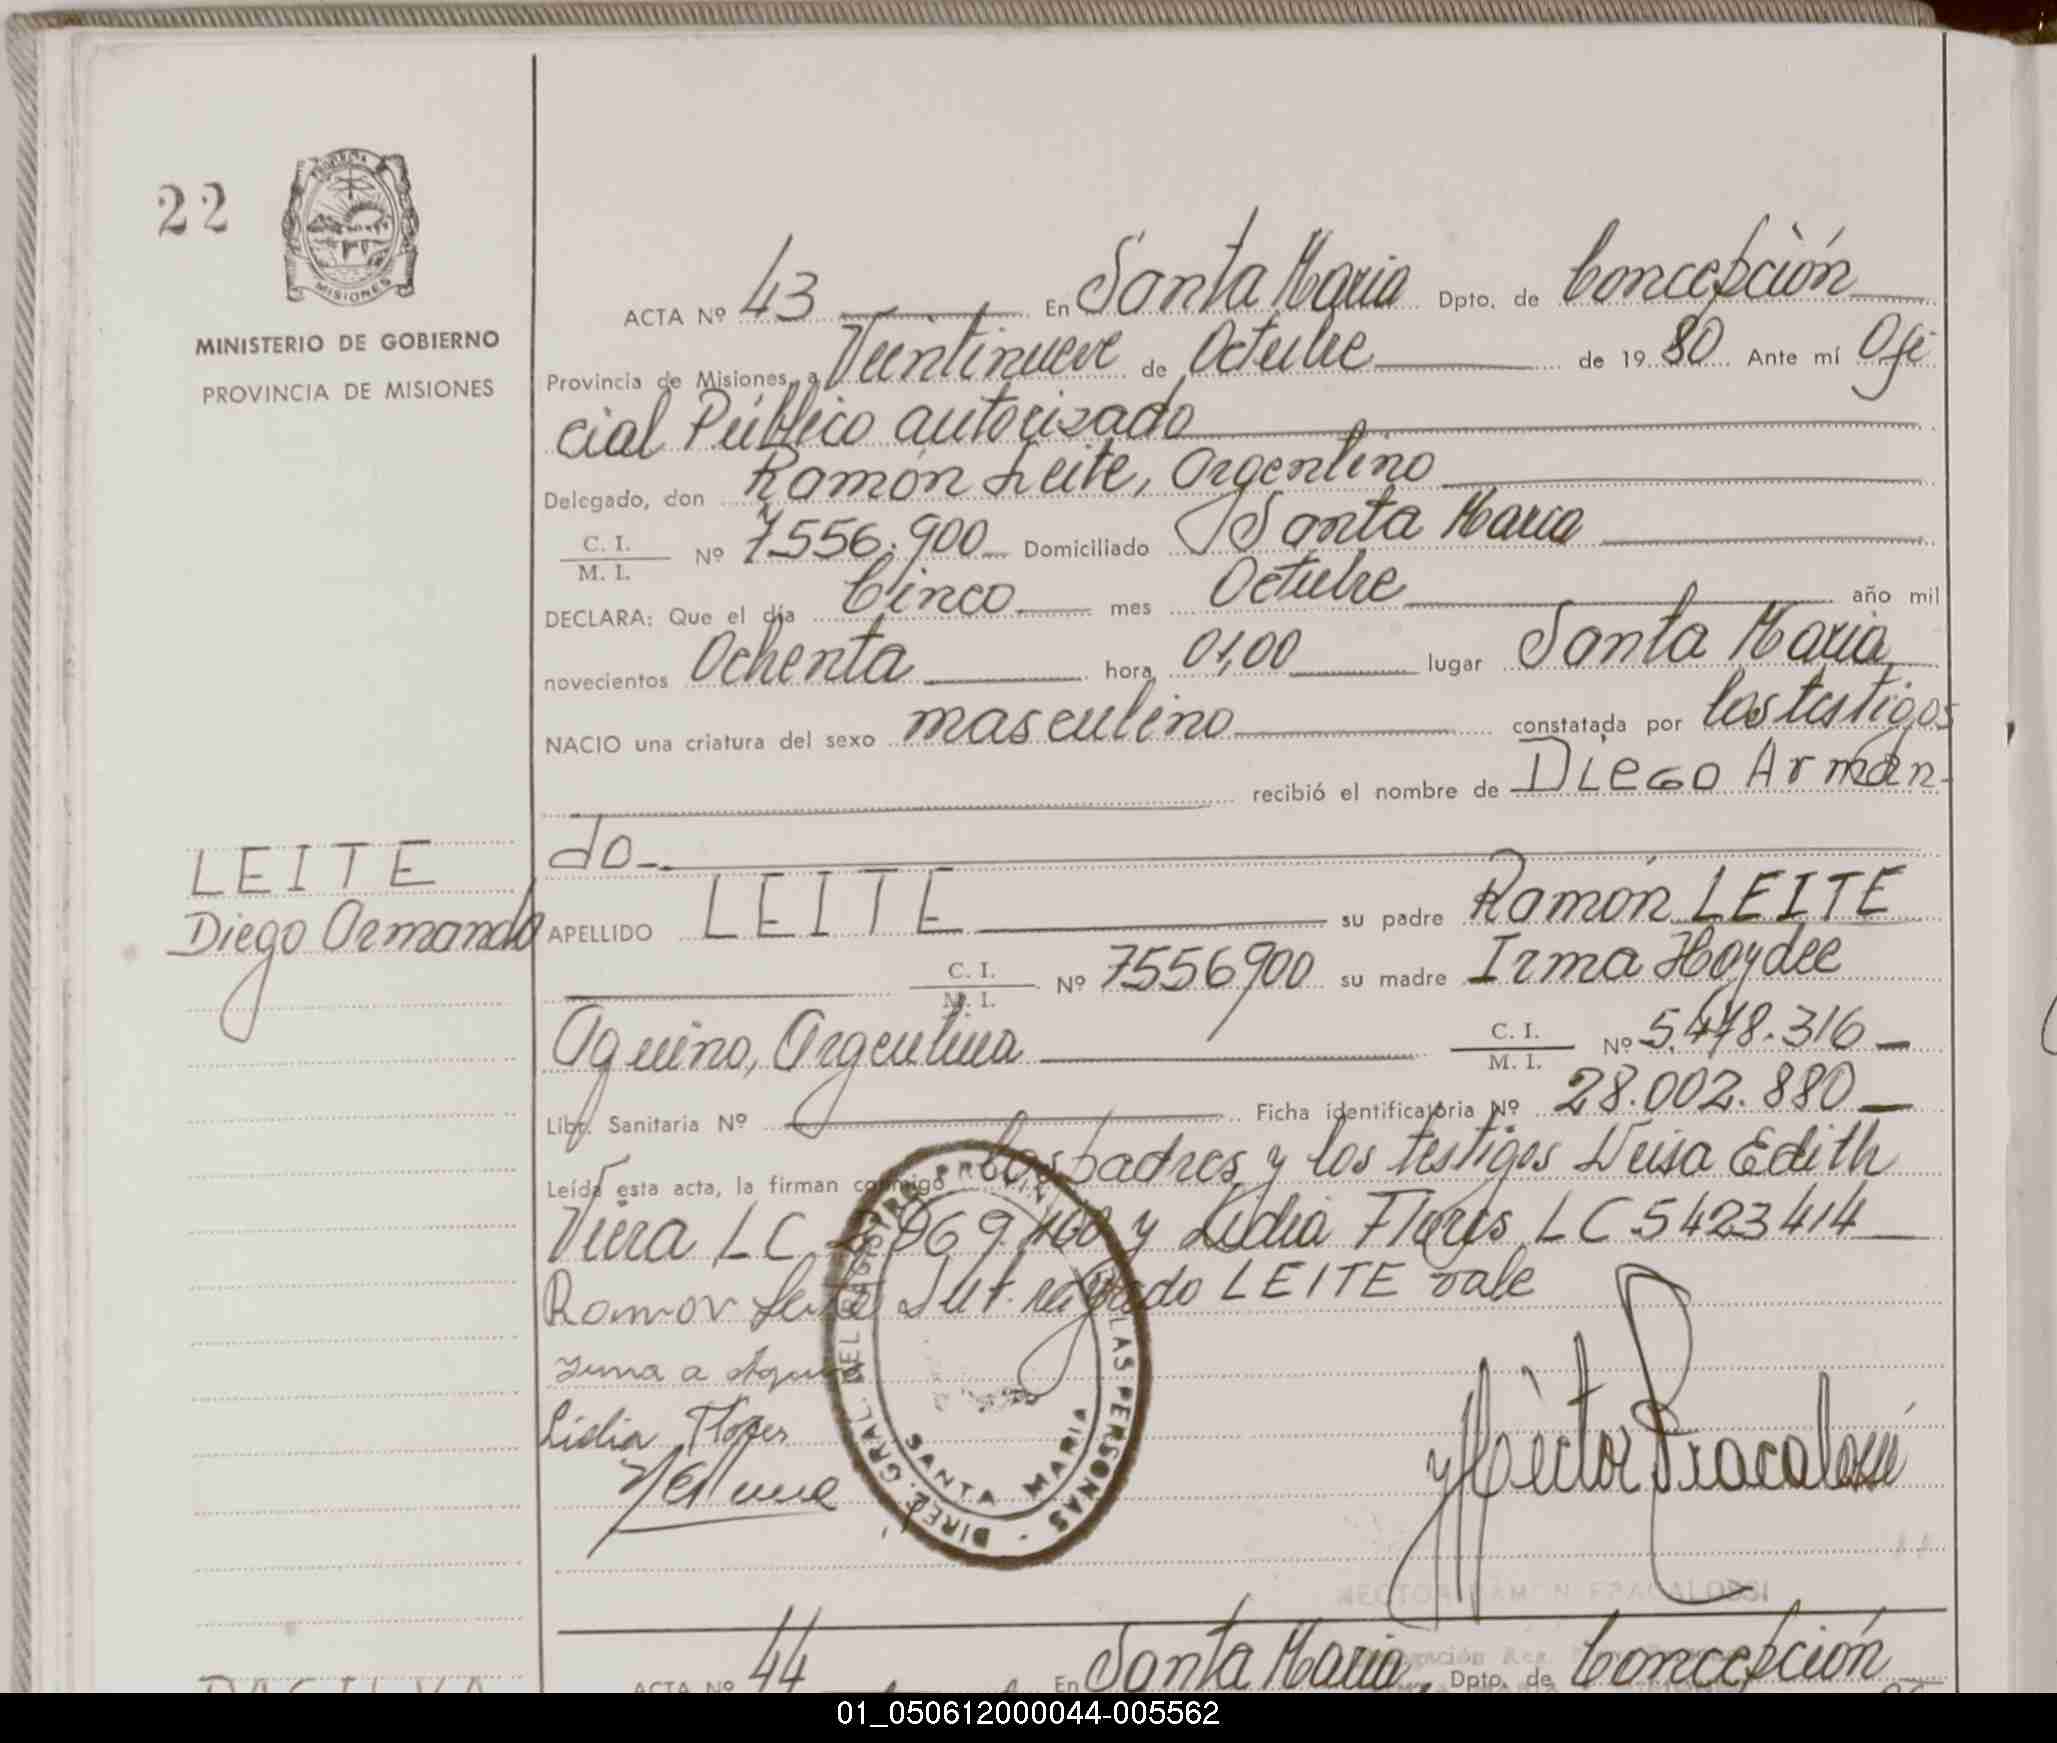 22
PROVINCIA
MISIONES
MINISTERIO DE GOBIERNO
PROVINCIA DE MISIONES
ACTA Nº 43 En Santa Maria Dpto. de Concepción
Provincia de Misiones, a Veintinueve de Octubre de 19 80 Ante mí Ofi
cial Público autorizado
Delegado, don Ramón Leite, Argentino
C. I.
M. I. Nº 7556.900 Domiciliado Santa Maria
DECLARA: Que el día Cinco mes Octubre año mil
novecientos Ochenta hora 01,00 lugar Santa Maria
NACIO una criatura del sexo masculino constatada por los testigos
recibió el nombre de Diego Arman-
do-
LEITE
Diego Armando
APELLIDO LEITE su padre Ramón LEITE
C. I.
M. I. Nº 7556900 su madre Irma Haydee
Aquino, Argentina C. I.
M. I. Nº 5.478.316
Libr. Sanitaria Nº Ficha identificatoria Nº 28.002.880
Leída esta acta, la firman conmigo los padres y los testigos Edith
Vieira LC y Lidia Flores LC 5423414
Ramon Leite LEITE vale
Irma a Aquino
Lidia Flores
DIREC. GRAL. DEL REGISTRO PROV. LAS PERSONAS -
SANTA MARIA
Héctor Fracalossi
HECTOR RAMON FRACALOSSI
ACTA Nº 44 En Santa Maria Dpto. de Concepción
01_050612000044-005562